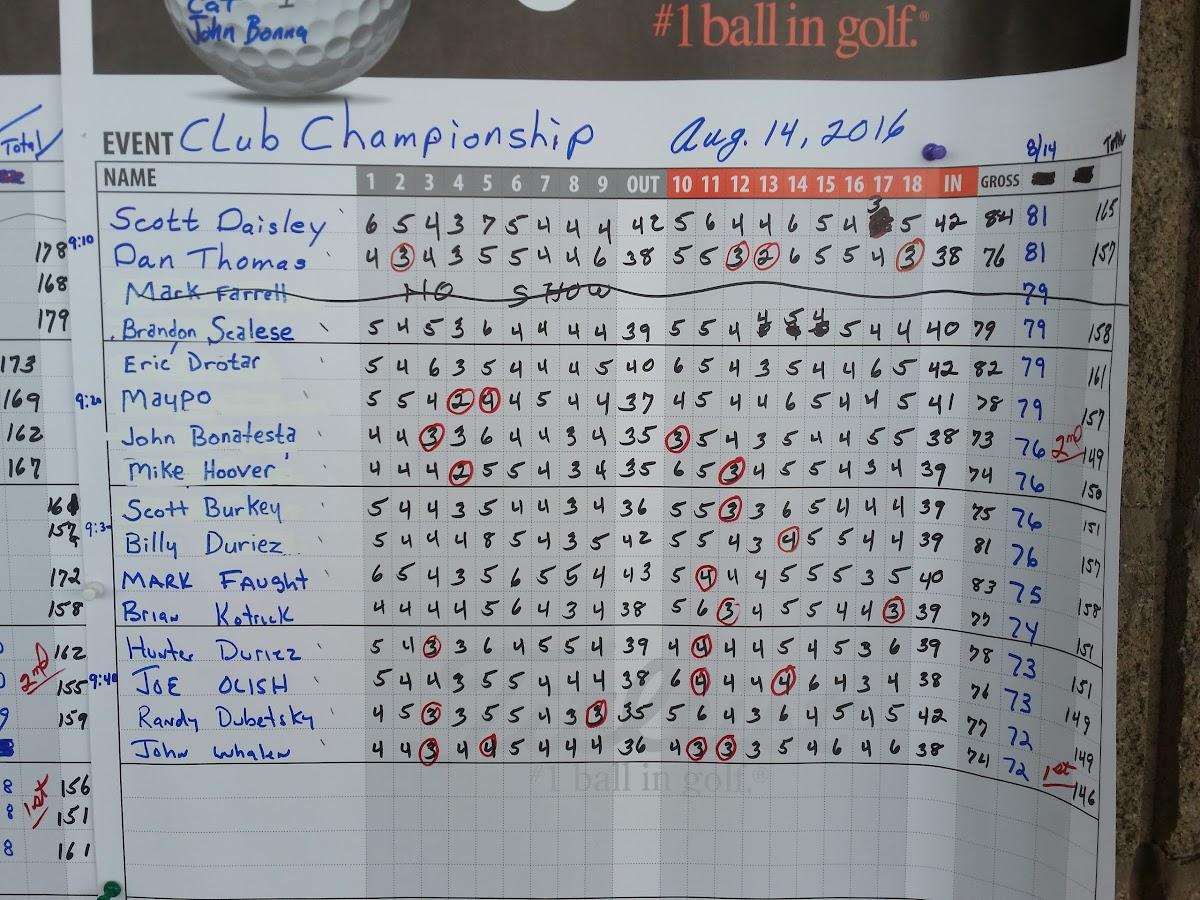 Cat
John Bonna
#1 ball in golf.®
Total
EVENT Club Championship Aug. 14, 2016 8/14 Total
NAME 1 2 3 4 5 6 7 8 9 OUT 10 11 12 13 14 15 16 17 18 IN GROSS
Scott Daisley 6 5 4 3 7 5 4 4 4 42 5 6 4 4 6 5 4 3 5 42 84 81 165
178 9:10 Dan Thomas 4 3 4 3 5 5 4 4 6 38 5 5 3 2 6 5 5 4 3 38 76 81 157
168 Mark Farrell NO SHOW 79
179 Brandon Scalese 5 4 5 3 6 4 4 4 4 39 5 5 4 4 5 4 5 4 4 40 79 79 158
173 Eric Drotar 5 4 6 3 5 4 4 4 5 40 6 5 4 3 5 4 4 6 5 42 82 79 161
169 9:20 Maypo 5 5 4 2 4 4 5 4 4 37 4 5 4 4 6 5 4 4 5 41 78 79 157
162 John Bonatesta 4 4 3 3 6 4 4 3 4 35 3 5 4 3 5 4 4 5 5 38 73 76 2nd 149
167 Mike Hoover 4 4 4 2 5 5 4 3 4 35 6 5 3 4 5 5 4 3 4 39 74 76 150
Scott Burkey 5 4 4 3 5 4 4 3 4 36 5 5 3 3 6 5 4 4 4 39 75 76 151
9:3 Billy Duriez 5 4 4 4 8 5 4 3 5 42 5 5 4 3 4 5 5 4 4 39 81 76 157
172 MARK FAught 6 5 4 3 5 6 5 5 4 43 5 4 4 4 5 5 5 3 5 40 83 75 158
158 Brian Kotrick 4 4 4 4 5 6 4 3 4 38 5 6 3 4 5 5 4 4 3 39 77 74 151
2nd 162 Hunter Duriez 5 4 3 3 6 4 5 5 4 39 4 4 4 4 5 4 5 3 6 39 78 73 151
155 9:40 JOE OLISH 5 4 4 3 5 5 4 4 4 38 6 4 4 4 4 6 4 3 4 38 76 73 149
159 Randy Dubetsky 4 5 3 3 5 5 4 3 3 35 5 6 4 3 6 4 5 4 5 42 77 72 149
John Whalen 4 4 3 4 4 5 4 4 4 36 4 3 3 3 5 4 6 4 6 38 74 72 1st 146
#1 ball in golf.®
8 1st 156
8 151
8 161